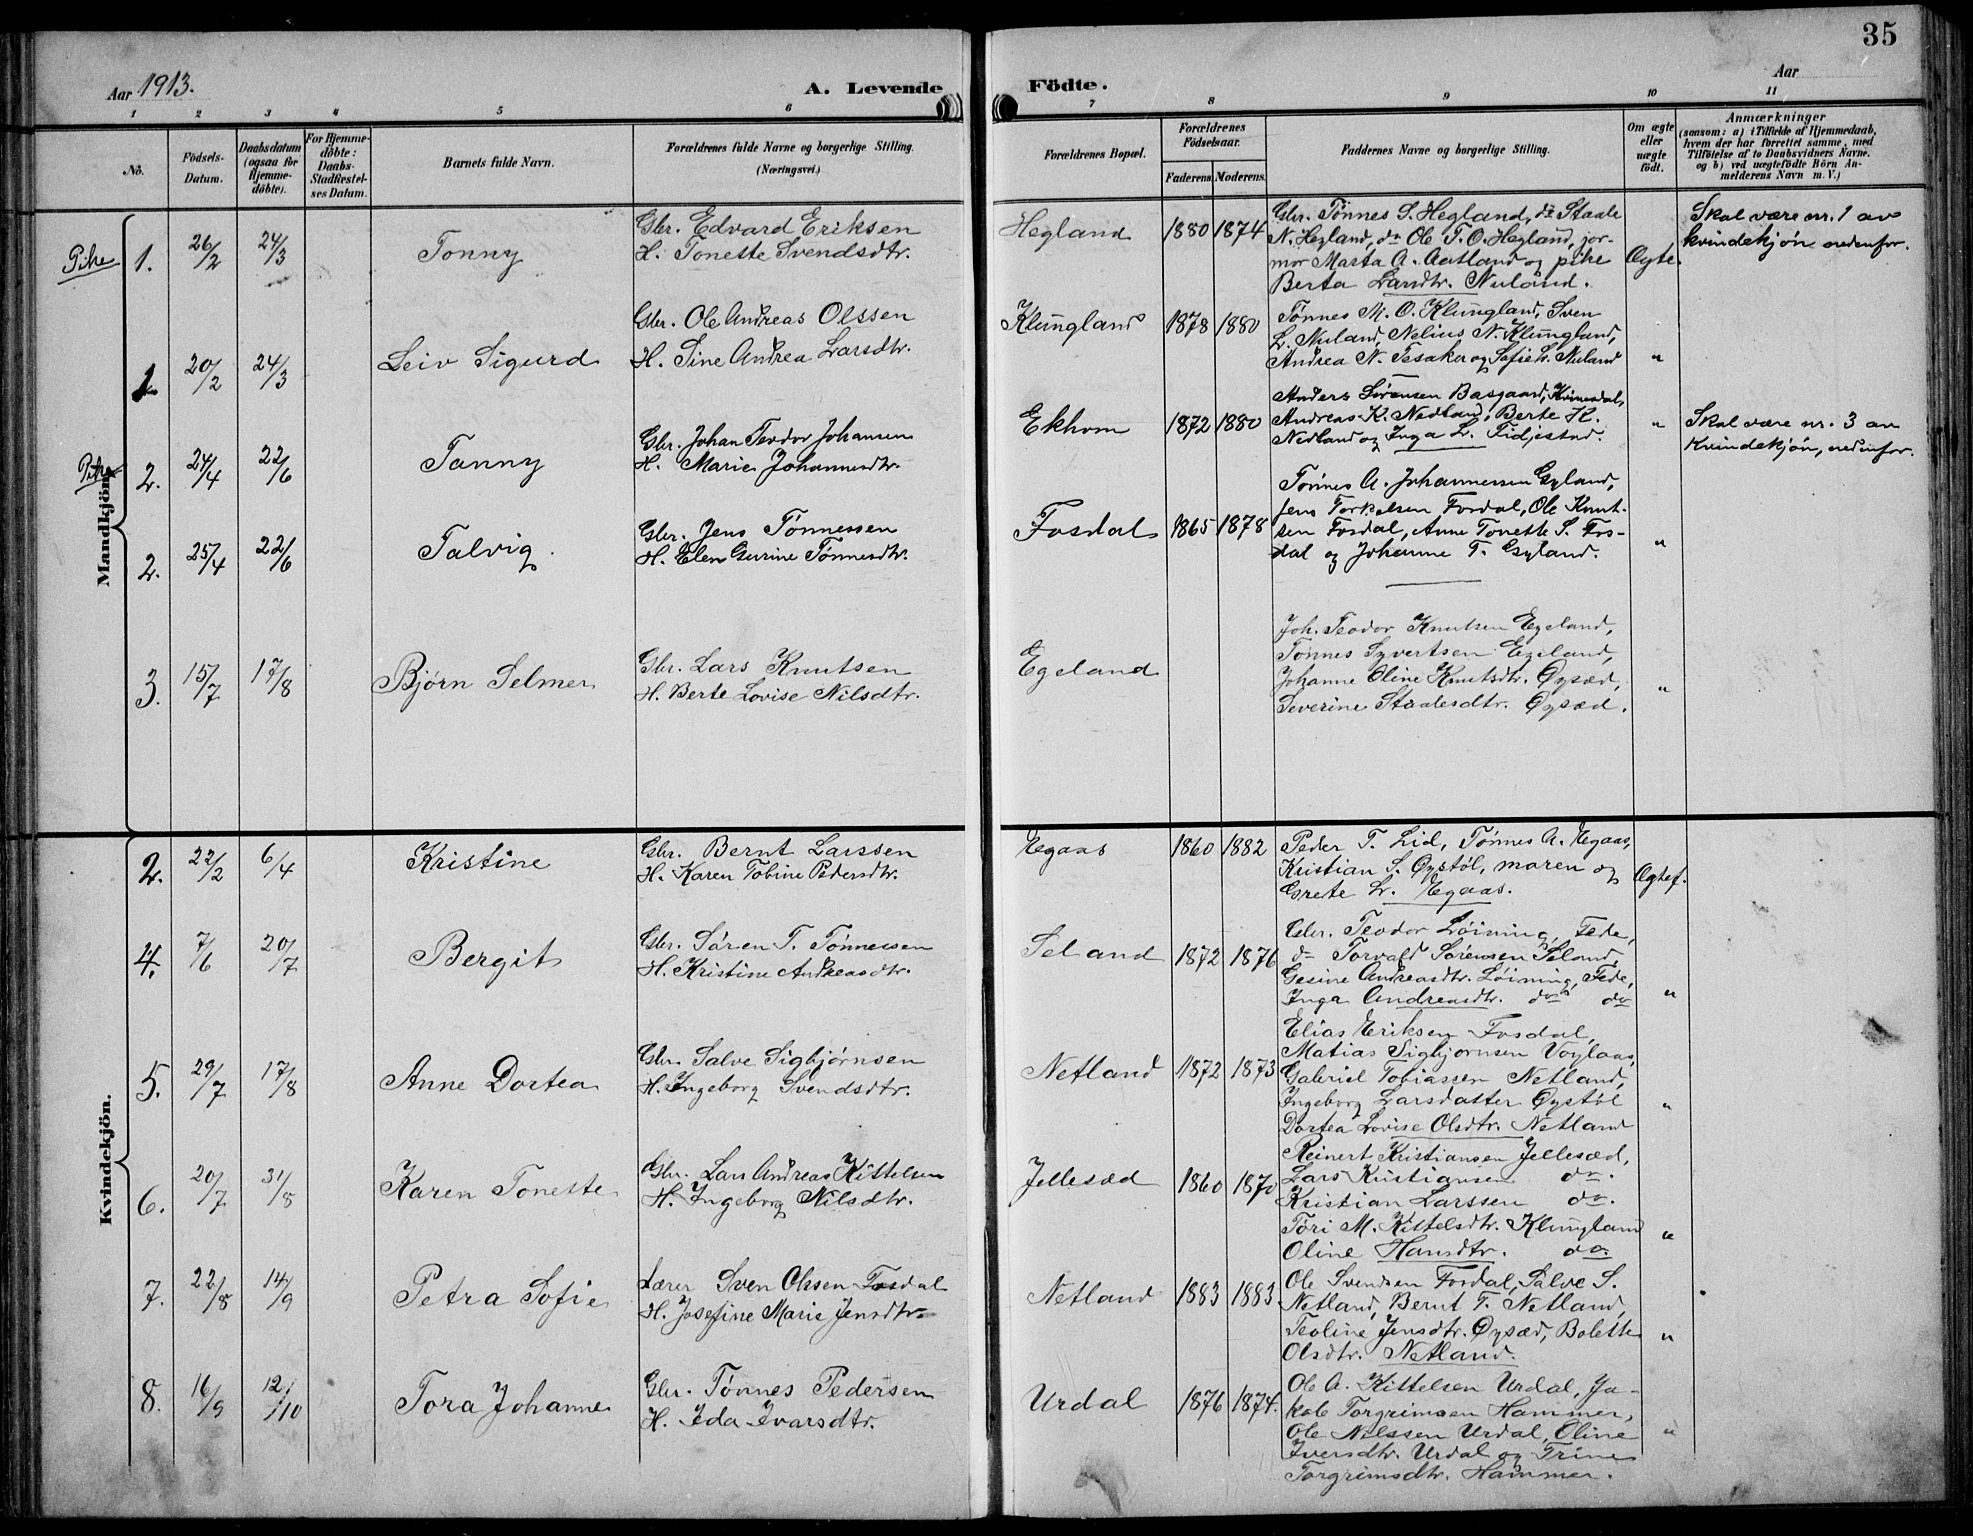 35
Aar 1913.
A. Levende Födte.
Aar
1 2 3 4 5 6 7 8 9 10 11
No.
Födsels-Datum.
Daabsdatum (ogsaa for Hjemmedöbte).
For Hjemmedöbte: Daabs-Stadfæstelses Datum.
Barnets fulde Navn.
Forældrenes fulde Navne og borgerlige Stilling.
(Næringsvei.)
Forældrenes Bopæl.
Forældrenes Födselsaar.
Faderens. Moderens.
Faddernes Navne og borgerlige Stilling.
Om ægte eller uægte födt.
Anmærkninger
(saasom: a) i Tilfælde af Hjemmedaab,
hvem der har forrettet samme, med
Tilföielse af to Daabsvidners Navne.
og b) ved uægtefödte Börn An-
melderens Navn m. V.)
Mandkjön.
Pike 1. 26/2 24/3 Tonny
Gbr. Edvard Eriksen
H. Tonette Svendsdtr.
Hegland 1880 1874
Gbr. Tønnes S. Hegland, do Staale
N. Hegland, do Ole T. O. Hegland, jor-
mor Marta A. Aatland og pike
Berta Larsdtr. Nuland.
Ægte.
Skal være nr. 1 av
kvindekjøn nedenfor.
1. 20/2 24/3 Leiv Sigurd
Gbr. Ole Andreas Olssen
H. Sine Andrea Larsdtr.
Klungland 1878 1880
Tønnes M. O. Klungland, Sven
L. Nuland, Nelius N. Klungland,
Andrea N. Tesaker og Sofie L. Nuland
"
Pike 2. 24/4 22/6 Tanny
Gbr. Johan Teodor Johansen
H. Marie Johannesdtr.
Ekhom 1872 1880
Anders Sørensen Basgaard, Kvinesdal,
Andreas K. Nedland, Berte K.
Nedland og Inga L. Fidjestad.
"
Skal være nr. 3 av
Kvindekjøn, nedenfor.
2. 25/4 22/6 Talvig.
Gbr. Jens Tønnessen
H. Elen Gurine Tønnesdtr.
Fosdal 1865 1878
Tønnes A. Johannessen Gyland,
Jens Torkelsen Fosdal, Ole Knut-
sen Fosdal, Anne Tonette S. Fos-
dal og Johanne T. Gyland.
"
3. 15/7 17/8 Bjørn Selmer
Gbr. Lars Knutsen
H. Berte Lovise Nilsdtr.
Egeland
Joh. Teodor Knutsen Egeland,
Tønnes Syvertsen Egeland,
Johanne Oline Knutsdtr. Øysæd,
Severine Staalesdtr. Øysæd.
"
Kvindekjön.
2. 22/2 6/4 Kristine
Gbr. Bernt Larssen
H. Karen Tobine Pedersdtr.
Egaas 1860 1882
Peder T. Lid, Tønnes A. Egaas,
Kristian S. Øystøl, maren og
Grete L. Egaas.
Ægtef.
4. 7/6 20/7 Bergit
Gbr. Søren T. Tønnessen
H. Kristine Andreasdtr.
Seland 1872 1876
Gbr. Teodor Løining, Fede,
do Torvald Sørensen Seland,
Gesine Andreasdtr. Løining, Fede,
Inga Andreasdtr. do do
"
5. 29/7 17/8 Anne Dortea
Gbr. Salve Sigbjørnsen
H. Ingeborg Svendsdtr.
Netland 1872 1873
Elias Eriksen Fosdal,
Matias Sigbjørnsen Voylaas,
Gabriel Tobiassen Netland,
Ingeborg Larsdatter Øystøl
Dortea Lovise Olsdtr. Netland
"
6. 20/7 31/8 Karen Tonette
Gbr. Lars Andreas Kittelsen
H. Ingeborg Nilsdtr.
Jellesæd 1860 1870
Reinert Kristiansen Jellesæd,
Lars Kristiansen do.
Kristian Larssen do.
Tori M. Kittelsdtr. Klungland
Oline Hansdtr. do.
"
7. 22/8 14/9 Petra Sofie
Lærer Sven Olssen Fosdal
H. Josefine Marie Jensdtr.
Netland 1883 1883
Ole Svendsen Fosdal, Salve S.
Netland, Bernt T. Netland,
Teoline Jensdtr. Øysæd, Bolette
Olsdtr. Netland.
"
8. 16/9 12/10 Tora Johanne
Gbr. Tønnes Pedersen
H. Ida Ivarsdtr.
Urdal 1876 1874.
Ole A. Kittelsen Urdal, Ja-
kob Torgrimsen Hammer,
Ole Nilssen Urdal, Oline
Iversdtr. Urdal og Trine
Torgrimsdtr. Hammer.
"